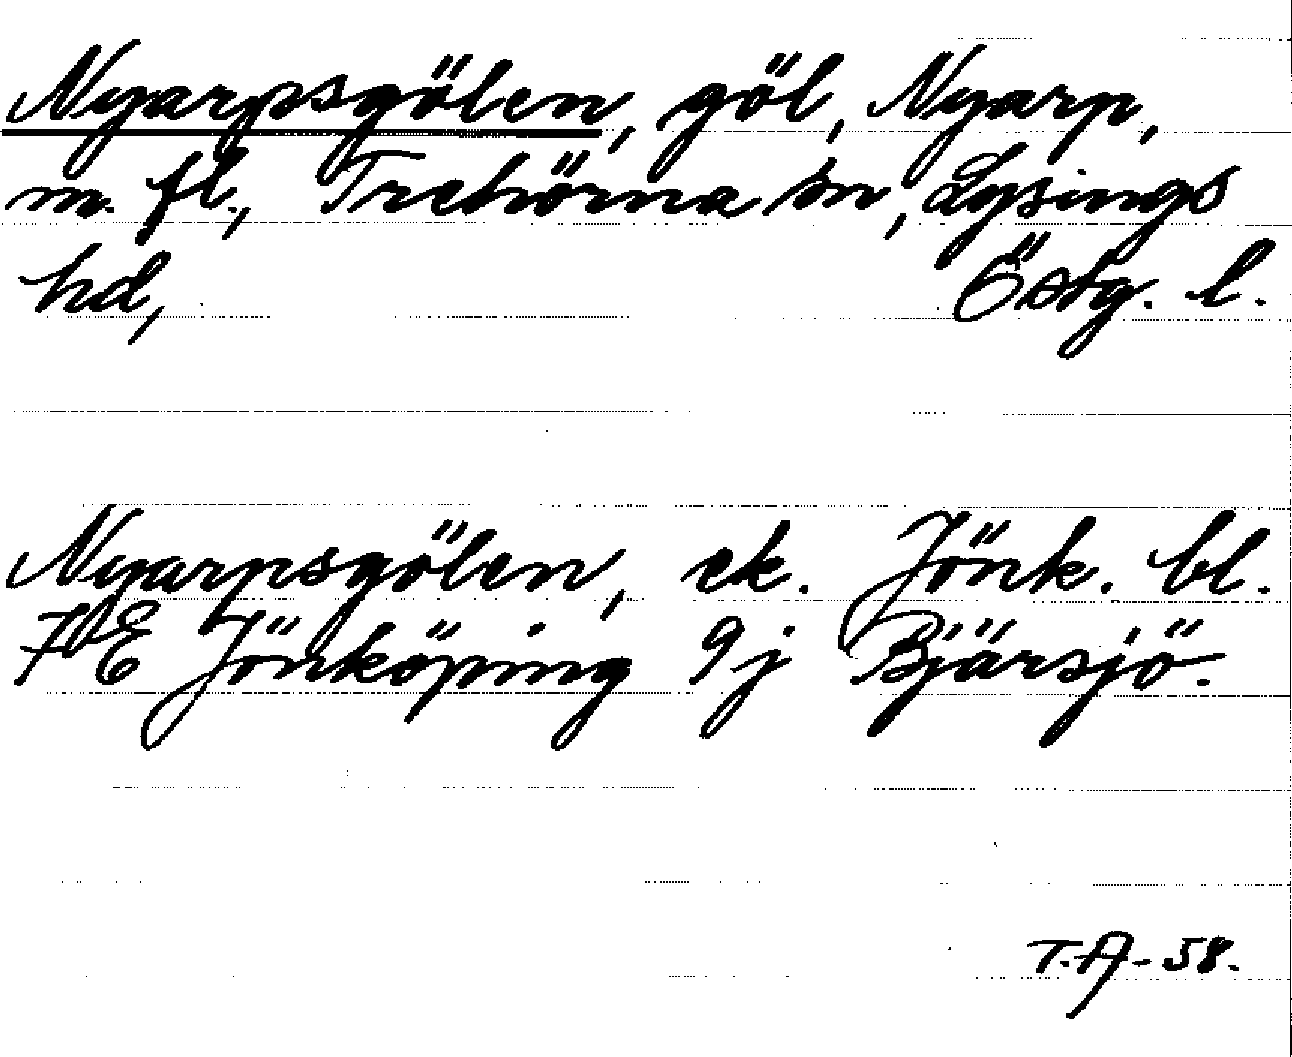 Nyarpsgölen, göl, Nyarp,
m. fl., Trehörna sn, Lysings
hd, Östg. l.
Nyarpsgölen, ek. Jönk. bl.
7 E Jönköping 9j Bjärsjö.
T.A-58.